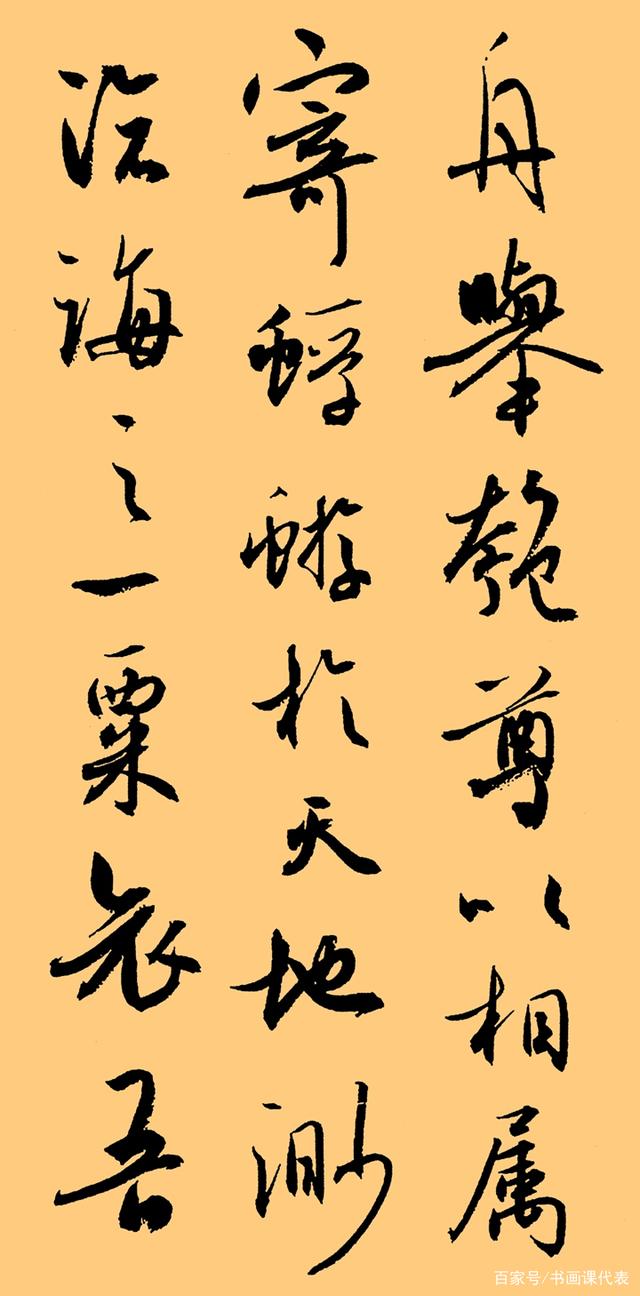 舟舉匏尊以相属
寄蜉蝣於天地渺
滄海之一粟哀吾
百家号/书画课代表